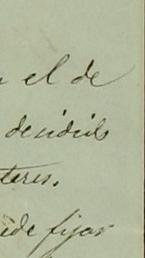 el de
decidirlo
teres.
ede fijar